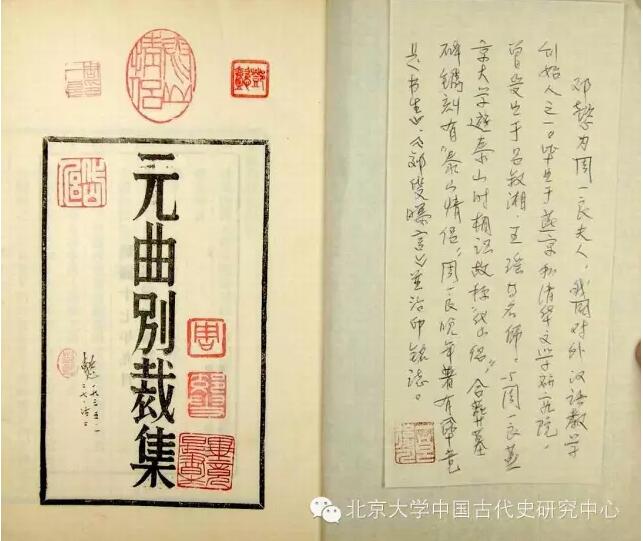 泰山情侣
元曲別裁集
邓懿为周一良夫人，我国对外汉语教学
创始人之一。毕业于燕京和清华文学研究院，
曾受业于吕叔湘、王瑶名师。与周一良燕
京大学游泰山时相识故称泰山侣，合葬墓
碑镌刻有“泰山情侣”。周一良晚年著有《毕竟
是书生》、《郊叟曝言》並治印铭志。
北京大学中国古代史研究中心